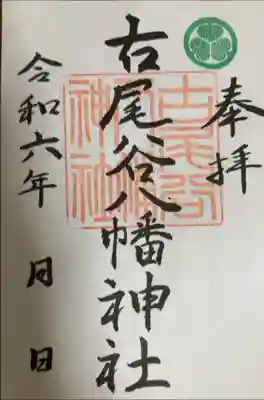 奉拝
古尾谷八幡神社
古尾谷八幡神社
令和六年 月 日